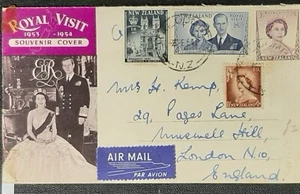 ROYAL VISIT
1953 - 1954
SOUVENIR COVER
NEW ZEALAND
NEW ZEALAND
N.Z.
Mrs H. Kemp,
29, Pages Lane,
Muswell Hill,
London N.10,
England.
AIR MAIL
PAR AVION